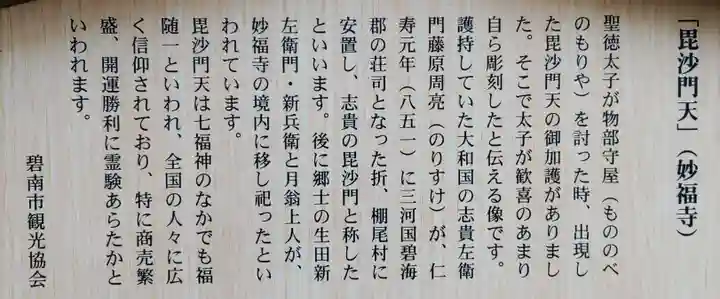 「毘沙門天」（妙福寺）
聖徳太子が物部守屋（もののべ
のもりや）を討った時、出現し
た毘沙門天の御加護がありまし
た。そこで太子が歓喜のあまり
自ら彫刻したと伝える像です。
護持していた大和国の志貴左衛
門藤原周亮（のりすけ）が、仁
寿元年（八五一）に三河国碧海
郡の荘司となった折、棚尾村に
安置し、志貴の毘沙門と称した
といいます。後に郷士の生田新
左衛門・新兵衛と月翁上人が、
妙福寺の境内に移し祀ったとい
われています。
毘沙門天は七福神のなかでも福
随一といわれ、全国の人々に広
く信仰されており、特に商売繁
盛、開運勝利に霊験あらたかと
いわれます。
碧南市観光協会